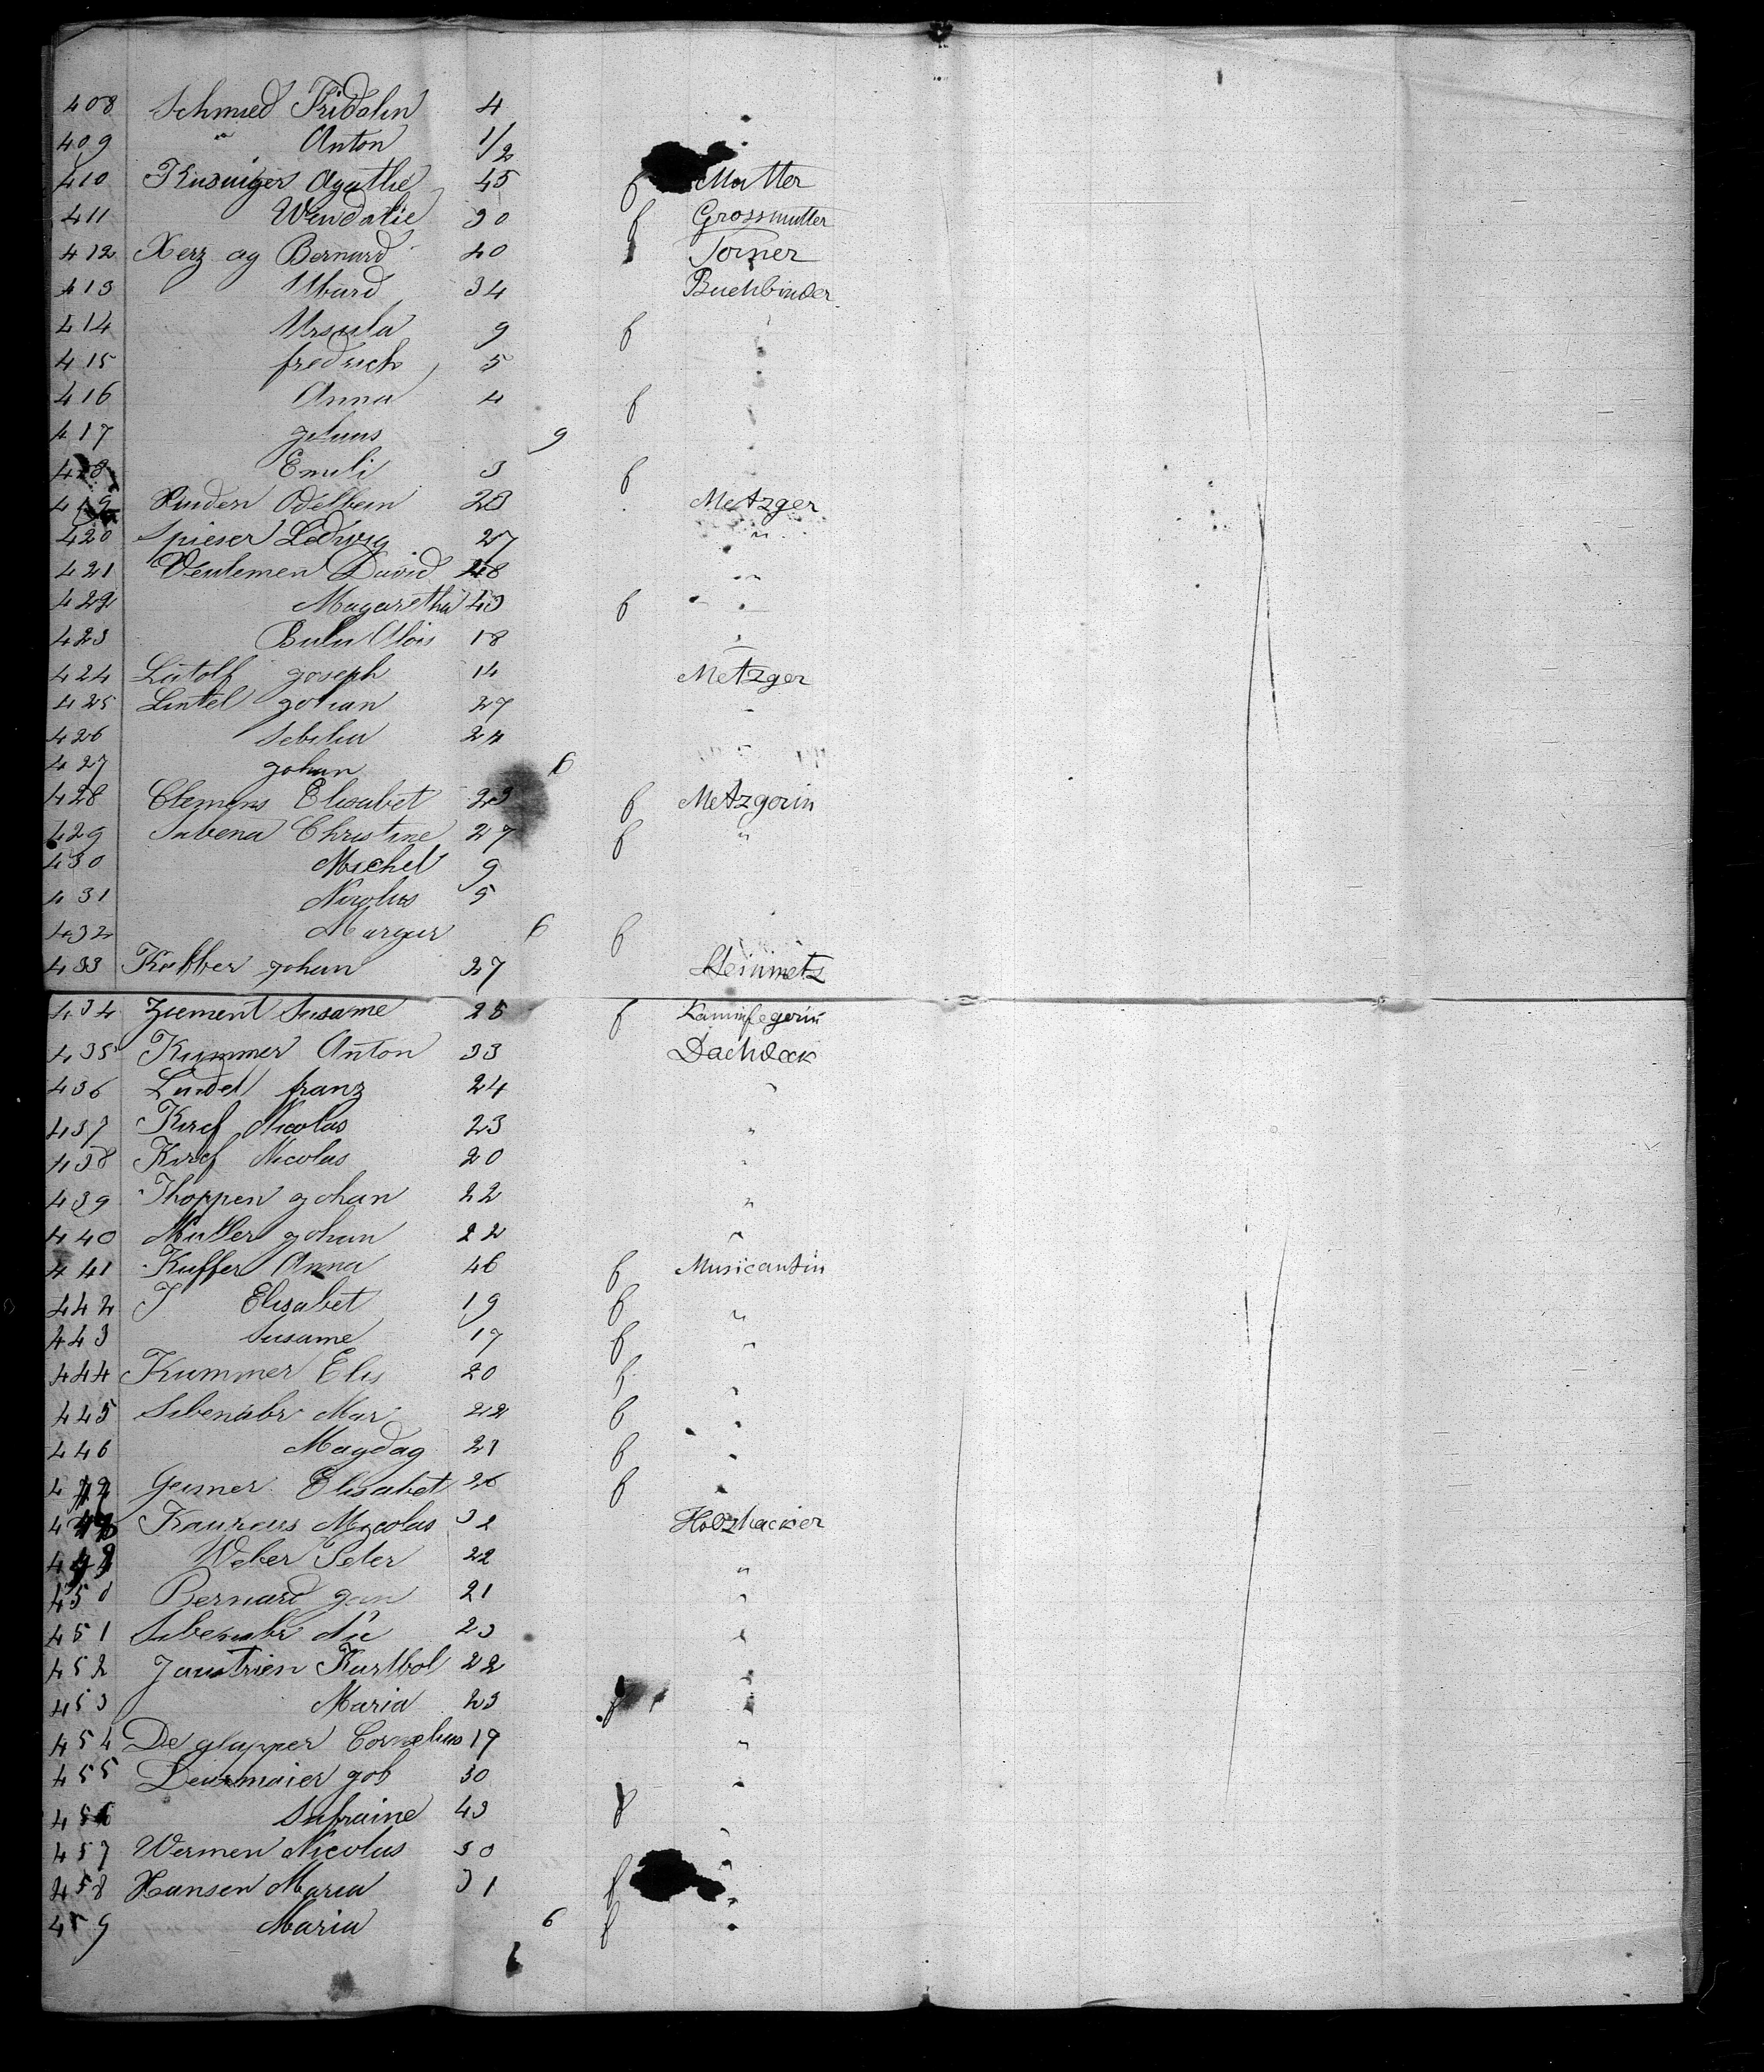 408 Schmied Fridolin 4
409 " Anton 1/2
410 Agathe 45 f Mutter
411 Wendalie 30 f Grossmutter
412 Herz og Bernard 40 Torner
413 34 Buchbinder
414 Ursula 9 f
415 fredrich 5
416 Anna 4 f
417 9
418 Emili 3 f
419 23 Metzger
420 Spieser Ledwig 27 "
421 Veulemen David 48 "
422 Magaretha 43 f "
423 Alois 18 "
424 Lütolf joseph 14 Metzger
425 Lintel johan 27 "
426 24 "
427 johan 6
428 Clemens Elisabet 23 f Metzgerin
429 Sabena Christine 27 f "
430 Michel 9
431 Nicolus 5
432 Margar 6 f
433 johan 27 Steinmetz
434 Ziement Susame 25 f Kaminfegerin
435 Kummer Anton 33 Dachdeck
436 Lindel franz 24 "
437 Kirch Nicolas 23 "
438 Kirch Nicolas 20 "
439 Thoppen johan 22 "
440 Muller johan 22 "
441 Kuffer Anna 46 f Musicantin
442 Elisabet 19 f "
443 Susame 17 f "
444 Kummer Elis 20 f "
445 Sibenabr Mar 22 f "
446 Magdag 21 f "
447 Geisner Elisabet 26 f "
448 32 Holzhacker
449 Weber Peter 22 "
450 Bernard jan 21 "
451 Sibenabr Nic 23 "
452 22 "
453 Maria 23 f "
454 De glapper Cornelius 19 "
455 job 30 "
456 43 f "
457 Wermen Nicolas 30 "
458 Hansen Maria 31 f "
459 Maria 6 f "